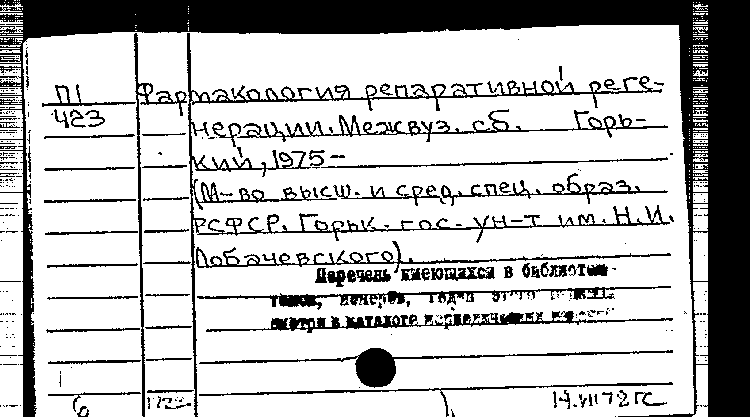 П1 Фармакология репаративной реге-
423 нерации. Межвуз. сб. Горь-
кий, 1975-
(М-во высш. и сред. спец. образ.
РСФСР. Горьк. гос. ун-т им. Н.И.
Лобачевского).
Перечень имеющихся в библиотеке
томов, номеров, годов этого издания
смотри в каталоге периодических изданий
6